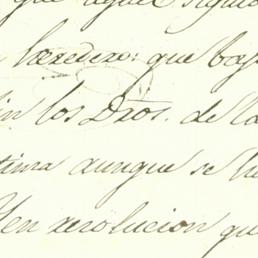 que aquel
heredero: que baj
in los Dros. de la
tima aunque se h
Yen resolucion qu